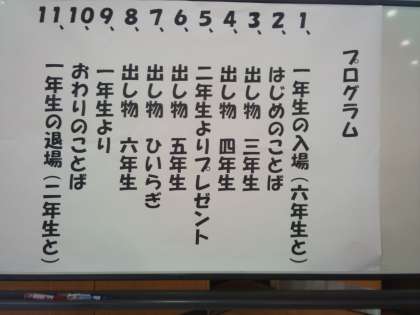 プログラム
1、一年生の入場(六年生と)
2、はじめのことば
3、出し物 三年生
4、出し物 四年生
5、二年生よりプレゼント
6、出し物 五年生
7、出し物 ひいらぎ
8、出し物 六年生
9、一年生より
10、おわりのことば
11、一年生の退場(二年生と)